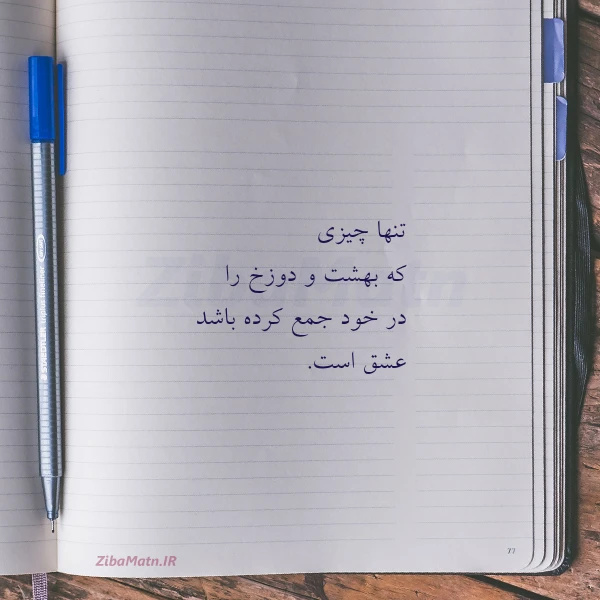 تنها چیزی
که بهشت و دوزخ را
در خود جمع کرده باشد
عشق است.
ZibaMatn
ZibaMatn.IR